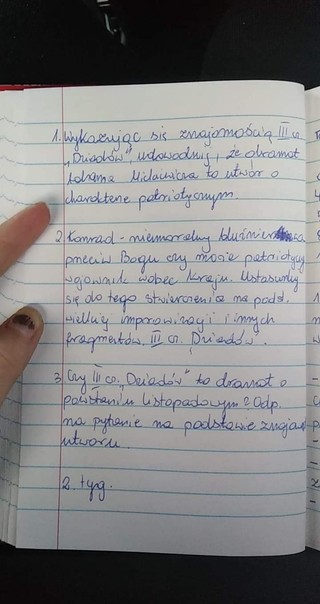 1. Wykazując się znajomością III cz.
„Dziadów", udowodnij, że dramat
Adama Mickiewicza to utwór o
charakterze patriotycznym.
2. Konrad - niemoralny bluźnierca
przeciw Bogu czy może patriotyczny
wojownik wobec kraju. Ustosunkuj
się do tego stwierdzenia na podst.
wielkiej improwizacji i innych
fragmentów III cz. „Dziadów".
3. Czy III cz. „Dziadów" to dramat o
powstaniu listopadowym? Odp.
na pytanie na podstawie znajom.
utworu.
2. tyg.